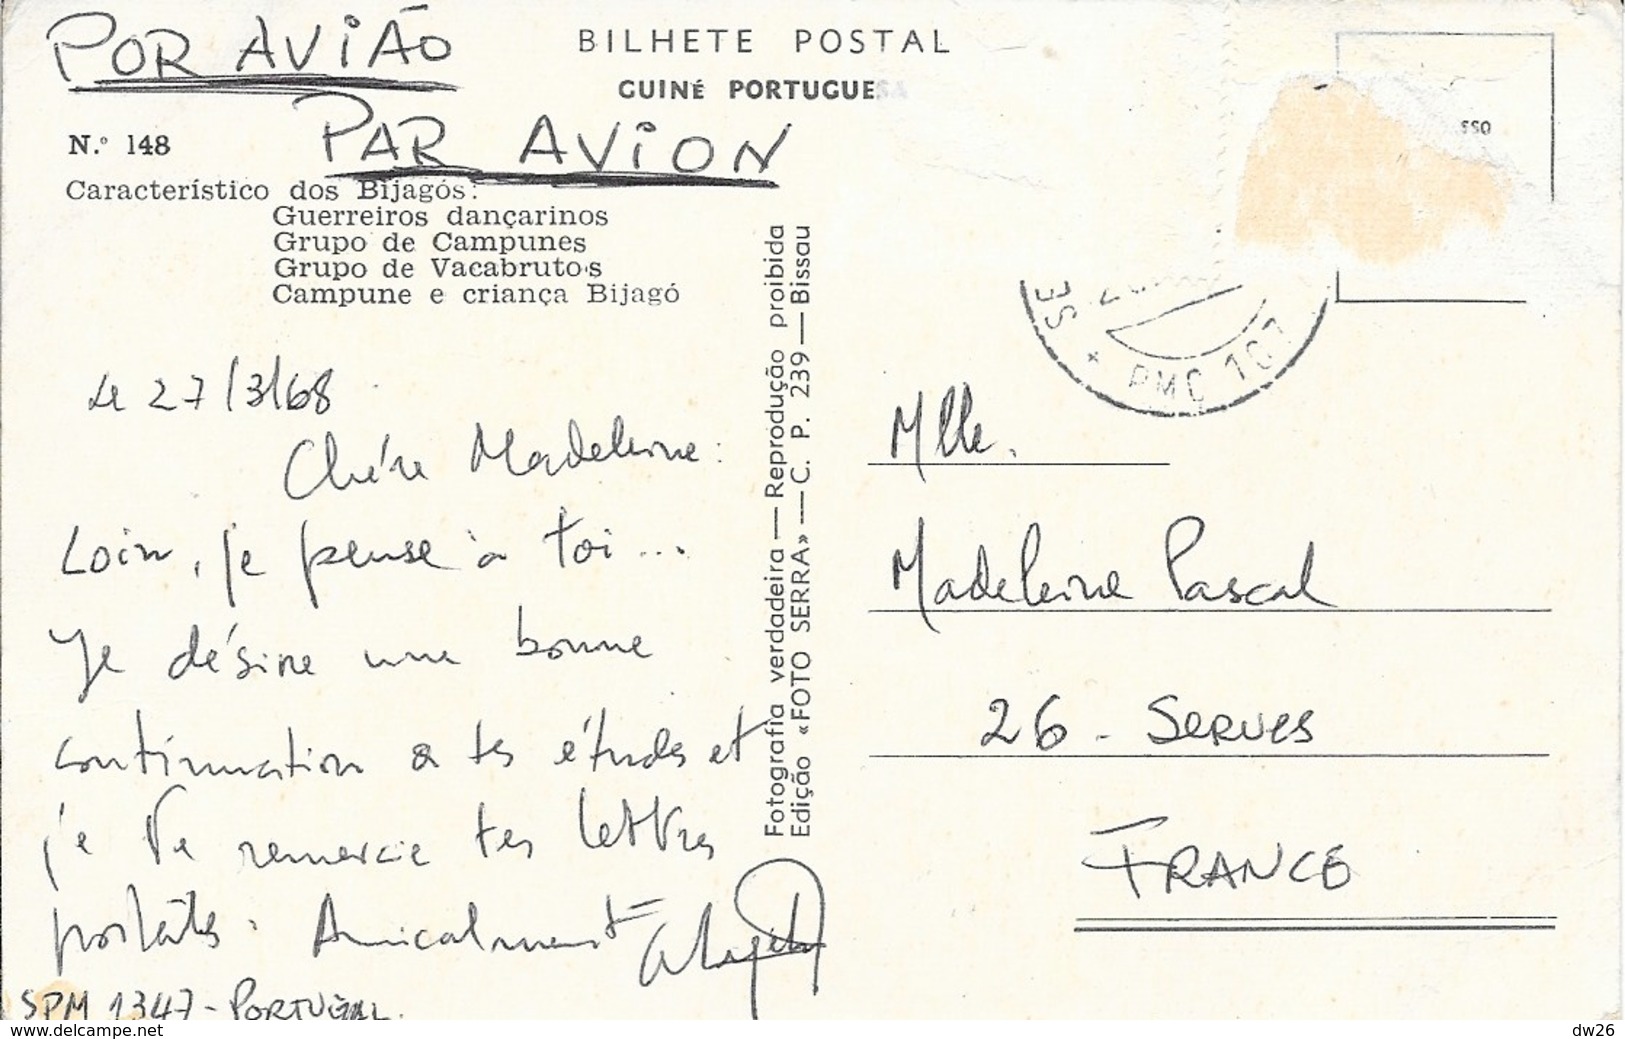 POR AVIÃO
BILHETE POSTAL
GUINÉ PORTUGUESA
PAR AVION
N.º 148
Característico dos Bijagós:
Guerreiros dançarinos
Grupo de Campunes
Grupo de Vacabrutos
Campune e criança Bijagó
Le 27/3/68
Chére Madeleine:
Loin, je pense à toi...
Je désire une bonne
continuation a tes études et
je te remercie tes lettres
postales. Amicalment
SPM 1347 - PORTUGAL.
Fotografia verdadeira — Reprodução proibida
Edição «FOTO SERRA» — C. P. 239 — Bissau
SSO
SE
* PMC 107
Mlle.
Madeleine Pascal
26 - SERVES
FRANCE
www.delcampe.net
dw26